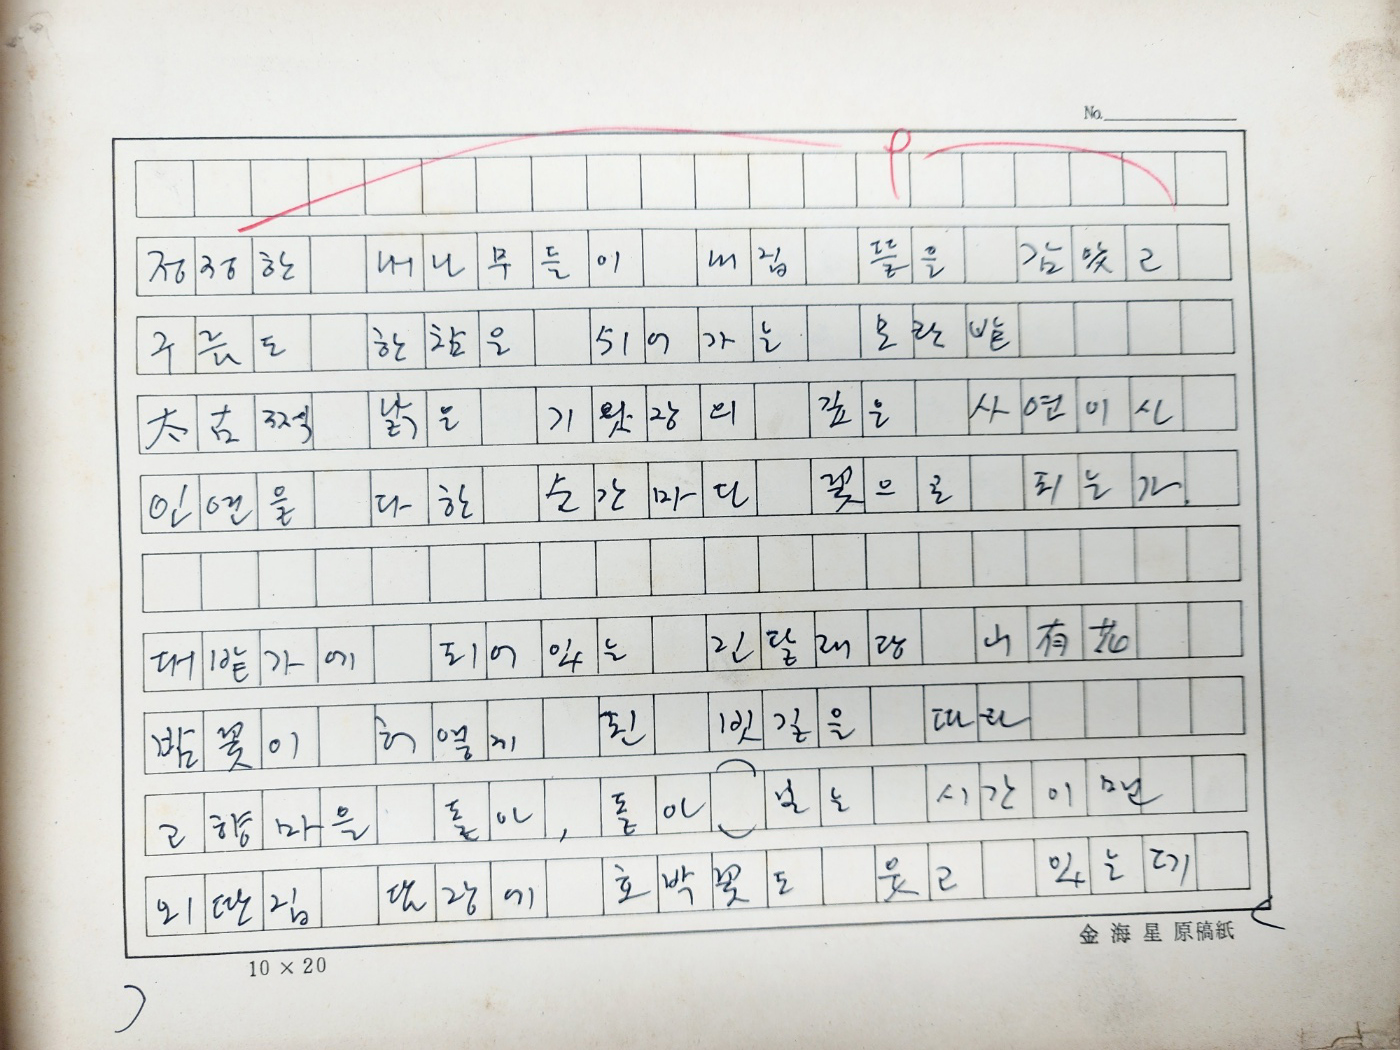 No.
정정한 대나무들이 내집 뜰을 감쌌고
구름도 한참을 쉬어가는 모란밭
太古적 낡은 기왓장의 깊은 사연이사
인연을 다한 순간마다 꽃으로 피는가.
대밭가에 피어 있는 진달래랑 山有花
밤꽃이 허옇게 핀 빗길을 따라
고향마을 돌아, 돌아 보는 시간이면
외딴집 담장에 호박꽃도 웃고 있는디
金海星 原稿紙
10 × 20